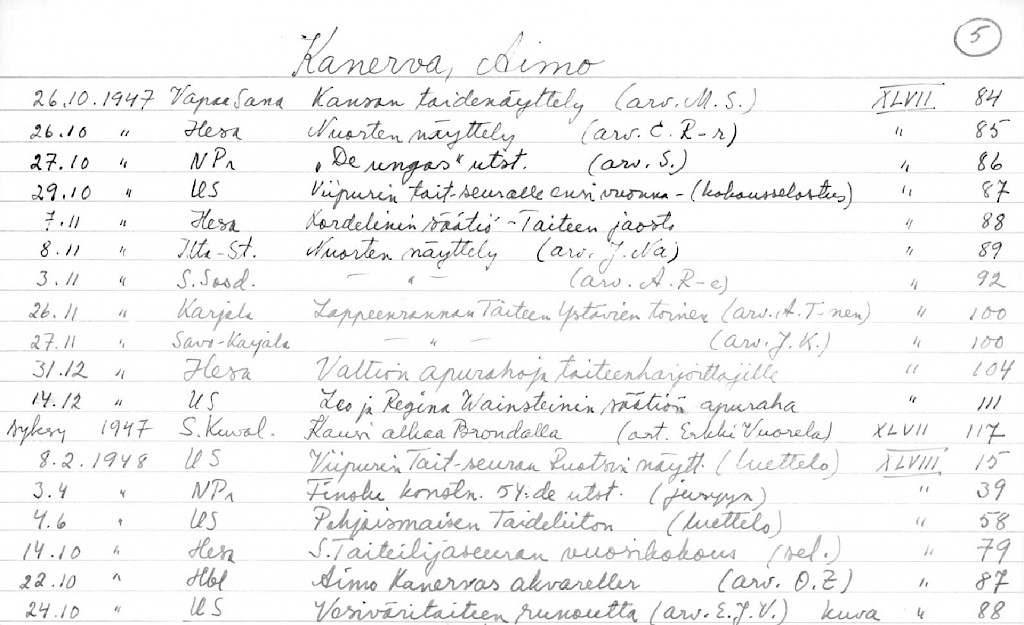 5
Kanerva, Aimo
26.10.1947 Vapaa Sana Kansan taidenäyttely (arv. M.S.) XLVII 84
26.10 " Hesa Nuorten näyttely (arv. E. R-r) " 85
27.10 " NPr "De ungas" utst. (arv. S.) " 86
29.10 " US Viipurin tait-seuralle ensi vuonna - (kokousselostus) " 87
7.11 " Hesa Kordelinin säätiö - Taiteen jaosto " 88
8.11 " Ilta-St. Nuorten näyttely (arv. J. Na) " 89
3.11 " S.Sosd. — " — (arv. A. R-e) " 92
26.11 " Karjala Lappeenrannan Taiteen Ystävien toinen (arv. A. T-nen) " 100
27.11 " Savo-Karjala — " — (arv. J.K.) " 100
31.12 " Hesa Valtion apurahoja taiteenharjoittajille " 104
14.12 " US Leo ja Regina Wainsteinin säätiön apuraha " 111
syksy 1947 S. Kuval. Kausi alkaa Brondalla (art. Erkki Vuorela) XLVII 117
8.2.1948 US Viipurin Tait-seuran Ruotsin näytt. (luettelo) XLVIII 15
3.4 " NPr Finska konstn. 54:de utst. (juryyn) " 39
4.6 " US Pohjoismaisen Taideliiton (luettelo) " 58
14.10 " Hesa S.Taiteilijaseuran vuosikokous (sel.) " 79
22.10 " Hbl Aimo Kanervas akvareller (arv. O.Z) " 87
24.10 " US Vesiväritaiteen runoutta (arv. E.J.V.) kuva " 88